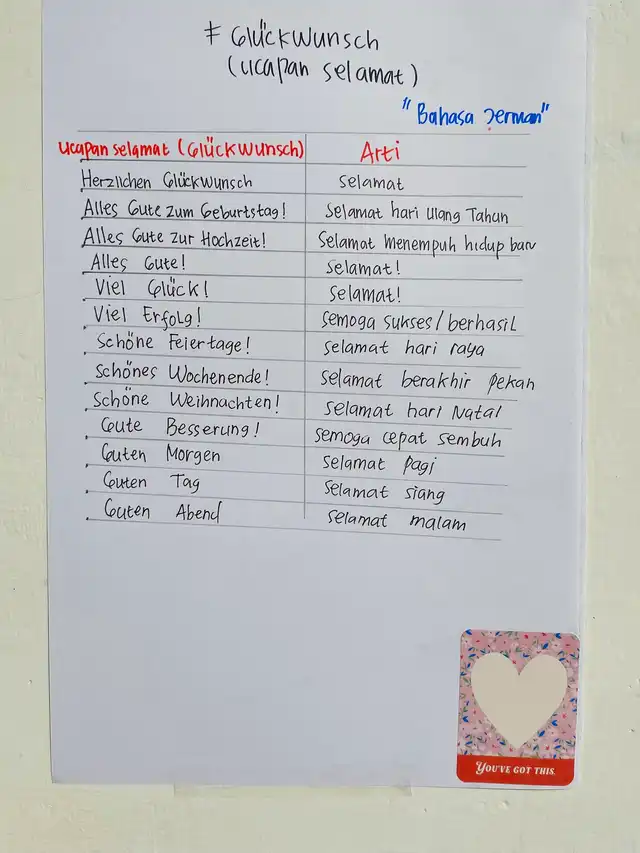 # Glückwunsch
(ucapan selamat)
"Bahasa Jerman"
ucapan selamat (Glückwunsch) Arti
Herzlichen Glückwunsch selamat
Alles Gute zum Geburtstag! Selamat hari ulang Tahun
Alles Gute zur Hochzeit! Selamat menempuh hidup baru
Alles Gute! selamat!
Viel Glück! selamat!
Viel Erfolg! semoga sukses/berhasil
Schöne Feiertage! selamat hari raya
schönes Wochenende! selamat berakhir pekan
schöne Weihnachten! selamat hari Natal
Gute Besserung! semoga cepat sembuh
Guten Morgen selamat pagi
Guten Tag selamat siang
Guten Abend selamat malam
YOU'VE GOT THIS.